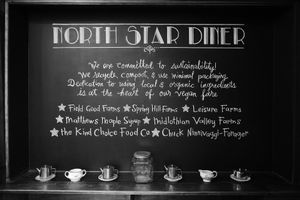 NORTH STAR DINER
We are committed to sustainability!
We recycle, compost, & use minimal packaging
Dedication to using local & organic ingredients
is at the heart of our vegan fare
★ Field Good Farms ★ Spring Hill Farms ★ Leisure Farms
★ Matthews Maple Syrup ★ Midlothian Valley Farms
★ the Kind Choice Food Co ★ Chick